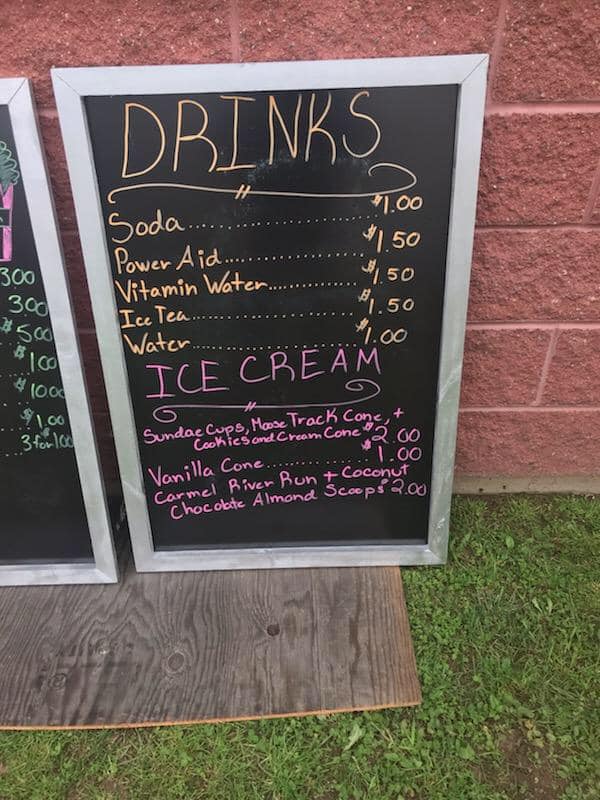 DRINKS
Soda.................... $1.00
Power Aid.................... $1.50
Vitamin Water.................... $1.50
Ice Tea.................... $1.50
Water.................... $1.00
ICE CREAM
Sundae Cups, Moose Track Cone, +
Cookies and Cream Cone $2.00
Vanilla Cone............ $1.00
Carmel River Run + Coconut
Chocolate Almond Scoops $2.00
300
300
$500
$100
$1000
$1.00
3 for 1.00